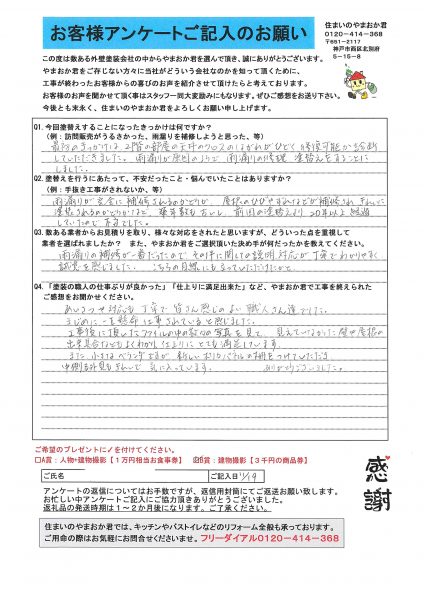 お客様アンケートご記入のお願い
住まいのやまおか君
0120-414-368
〒651-2117
神戸市西区北別府
5-15-8
この度は数ある外壁塗装会社の中からやまおか君を選んで頂き、誠にありがとうございます。
やまおか君をご存じない方々に当社がどういう会社なのかを知って頂くために、
工事が終わったお客様からの喜びのお声を紹介させて頂けたらと考えております。
お客様のお声を聞かせて頂く事はスタッフ一同大変励みにもなります。ぜひご感想をお送り下さい。
今後とも末永く、住まいのやまおか君をよろしくお願い申し上げます。
Q1. 今回塗替えすることになったきっかけは何ですか？
（例：訪問販売がうるさかった、雨漏りを補修しようと思った、等）
最初のきっかけは、2階の部屋の天井のクロスのはがれがひどく
していただきました。雨漏りが原因のようで 雨漏りの修理、塗替えをすることに
しました。
Q2. 塗替えを行うにあたって、不安だったこと・悩んでいたことはありますか？
（例：手抜き工事がされないか、等）
雨漏りが完全に補修されるのかどうか、屋根のひびやずれなどが補修され きれいに
塗装されるのかどうかなど、
していたので不安でした。
Q3. 数ある業者からお見積りを取り、様々な対応をされたと思いますが、どういった点を重視して
業者を選ばれましたか？ また、やまおか君をご選択頂いた決め手が何だったかを教えてください。
雨漏りの補修が一番だったので その件に関しての説明・対応が丁寧でわかりやすく
誠意を感じました。こちらの目線になっていただけたかと。
Q4. 「塗装の職人の仕事ぶりが良かった」「仕上りに満足出来た」など、やまおか君で工事を終えられた
ご感想をお聞かせください。
あいさつや対応も丁寧で皆さん感じのよい職人さん達でした。
まじめに一生懸命仕事されていると感じました。
工事後に頂いたファイルの中の数々の写真を見て、見えていなかった壁や屋根の
出来具合などもよくわかり、仕上りに とても満足しています。
また 小さなベランダですが 新しい
中側も外見もきれいで 気に入っています。 ありがとうございました。
ご希望のプレゼントに✓を付けてください。
□A賞：人物+建物撮影【１万円相当お食事券】 ☑B賞：建物撮影【３千円の商品券】
ご氏名
ご記入日
アンケートの返信についてはお手数ですが、返信用封筒にてご返送お願い致します。
お忙しい中アンケートご記入にご協力頂きありがとうございました。
返礼品の発送時期は１～２か月後になります。ご了承ください。
感謝
住まいのやまおか君では、キッチンやバストイレなどのリフォーム全般も承っております。
ご用命の際はお気軽にお問合せくださいませ。フリーダイアル0120-414-368